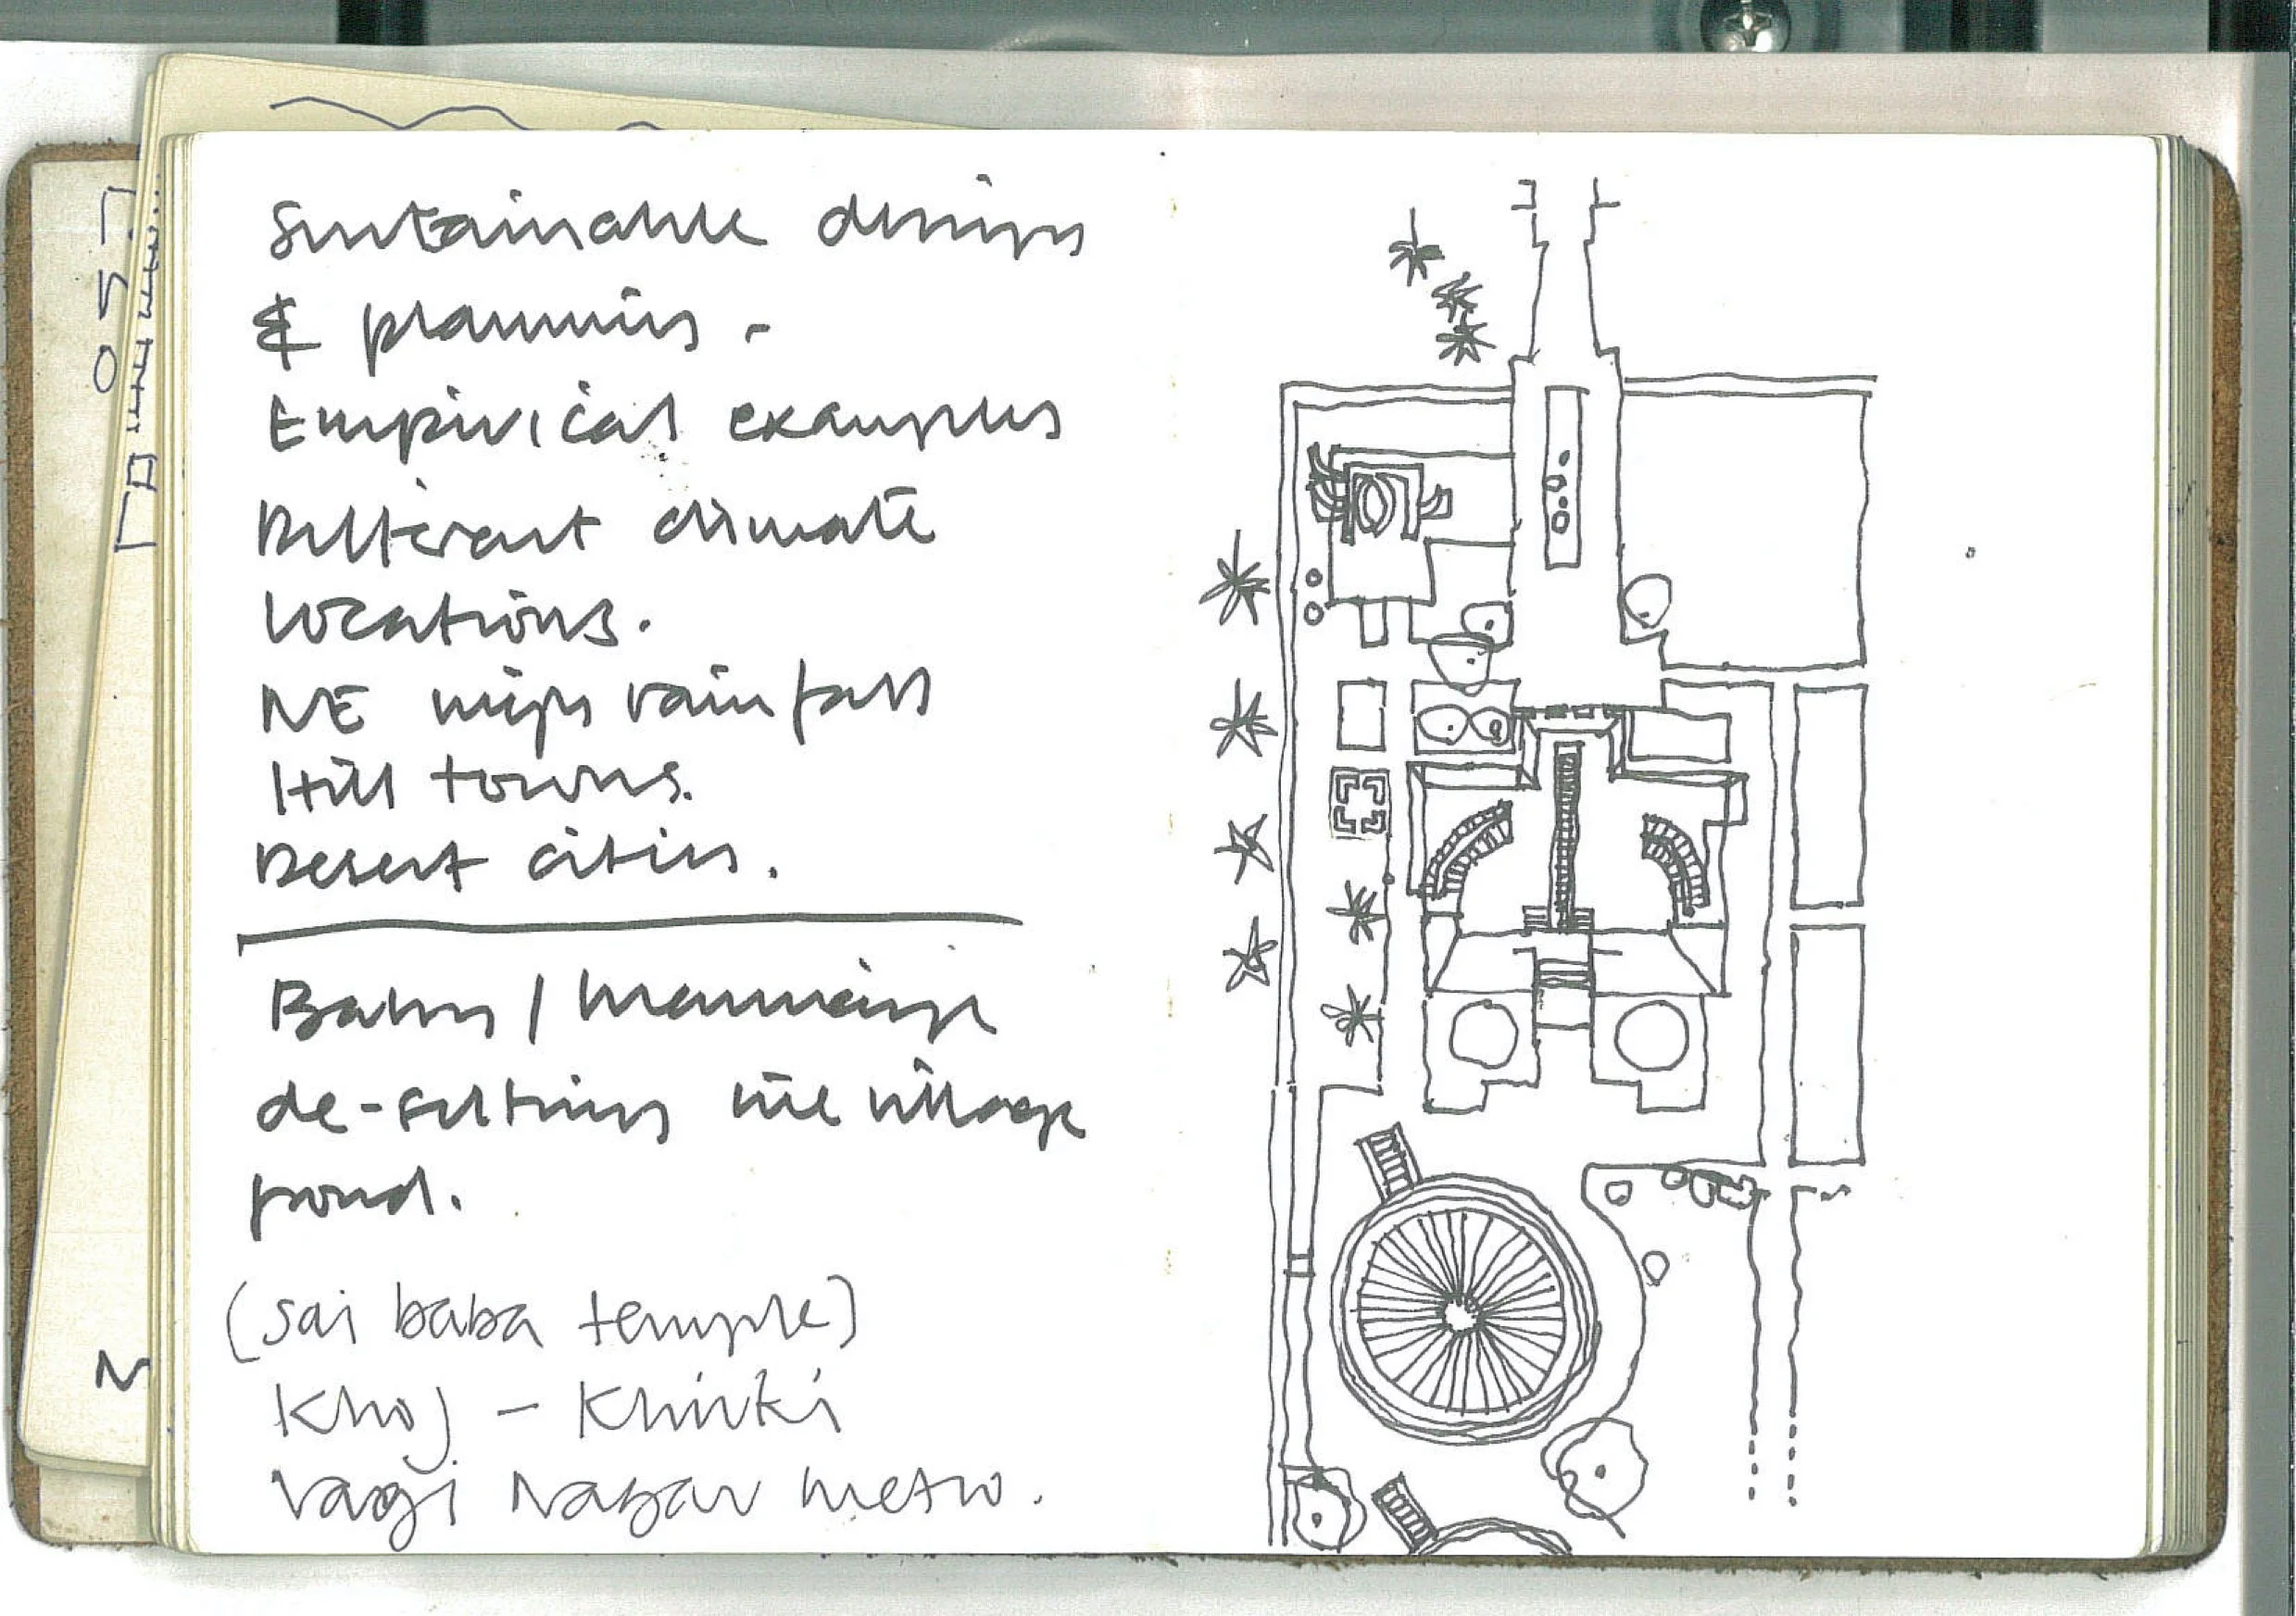 Sustainable design
& planning -
Empirical examples
Different climate
locations.
NE high rainfall
Hill towns.
Desert cities.
de-silting the village
pond.
(sai baba temple)
Khoj - Khirki
Nagar metro.